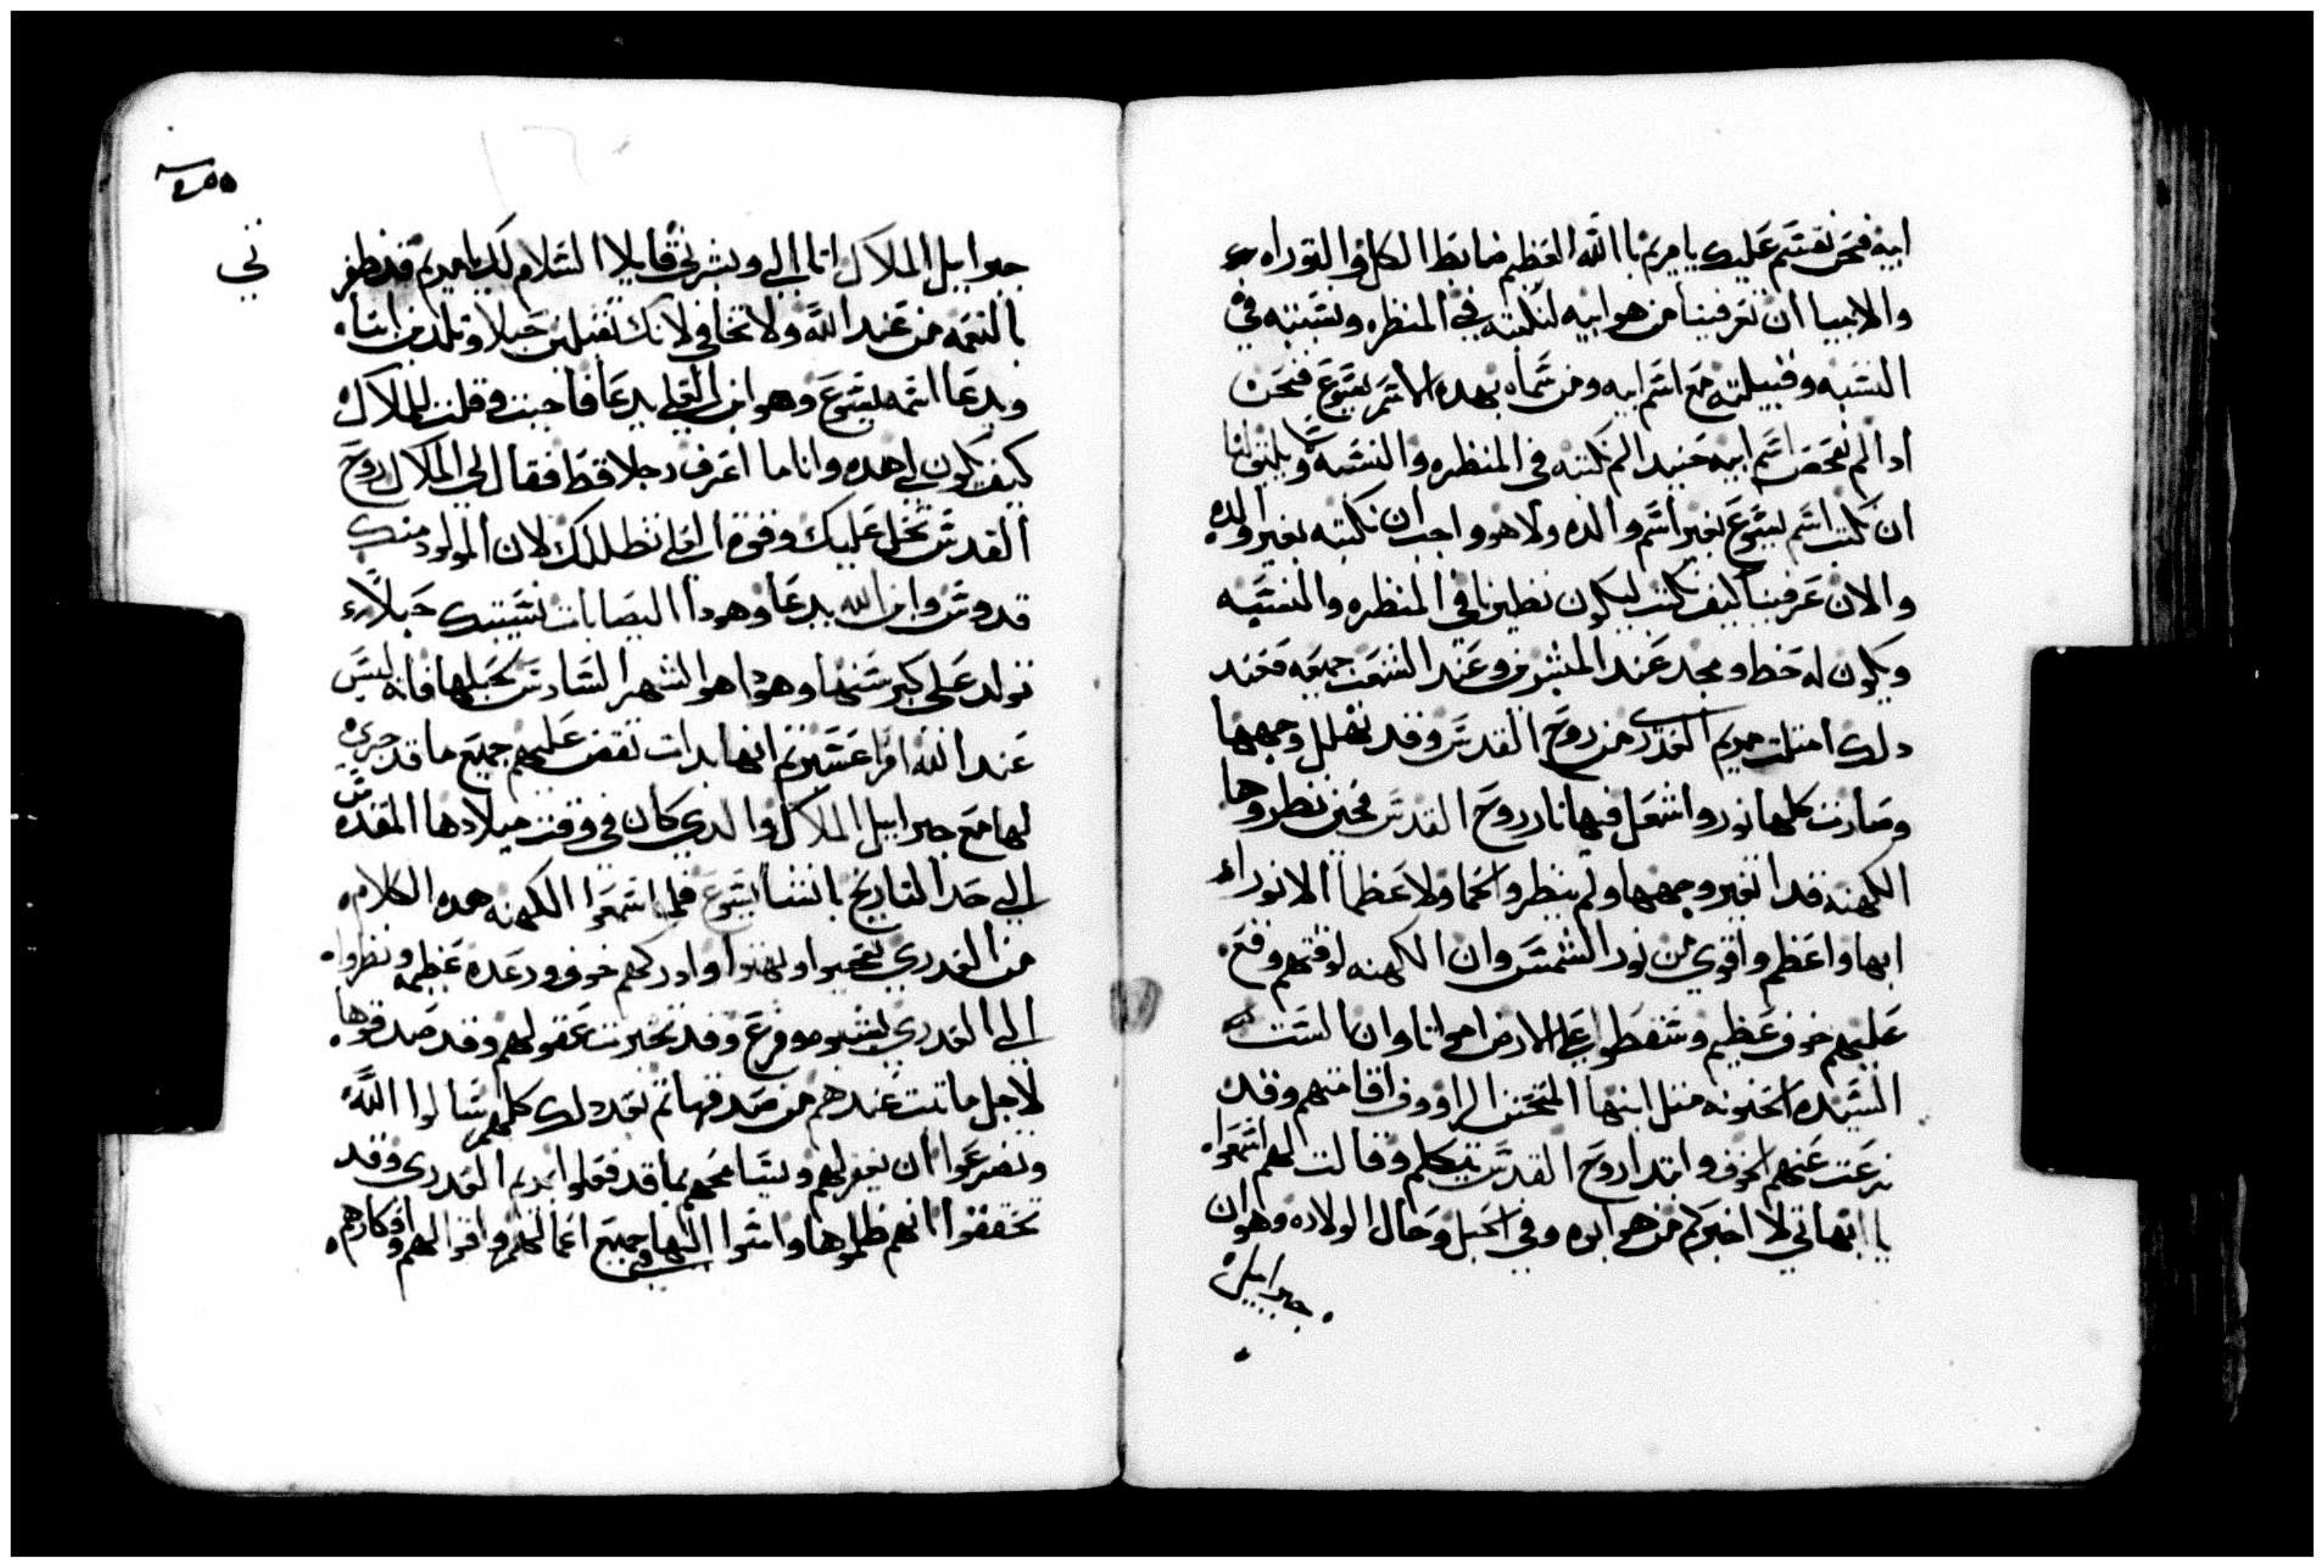 ابيه فنحن نقسم عليك يا مريم باالله العظيم ضابط الكل والتوراه
والانبيا ان تعرفينا من هو ابيه لنكتبه في المنظره ونسبته في
النسبه وقبيلته مع اسم ابيه ومن سماه بهده الاسم يسوع فنحن
ادا لم نفحص اسم ابيه حنيد الم نكتبه في المنظره والنسبه
ان نكتب اسم يسوع بغير اسم والده ولا هو واجب ان نكتبه بغير والده
والان عرفينا كيف نكتب ليكون نظيرنا في المنظره والنسبه
ويكون له حظ ومجد عند المبشرين وعند الشعب جميعه فعند
دلك امتلت مريم العدرى من روح القدس وقد تهلل وجهها
وصارت كلها نور واشعل فيها نار روح القدس فحين نظروها
الكهنه قد اتغير وجهها ولم ينظروا لحما ولا عظما الا نورا
ابها واعظم واقوي من نور الشمس وان الكهنه لوقتهم وقع
عليهم خوف عظيم وسقطوا على الارض امواتا وان الست
السيده الحنونه مثل ابنها المتحنن الراووف اقامتهم وقد
نزعت عنهم الخوف وابتدا روح القدس يتكلم وقالت لهم اسمعوا
يا ابهاتي لا اخبركم من هو ابوه وفي الحبل وحال الولاده وهو ان
جبراييل
٢٥٥
ني
جبراييل الملاك اتا الي وبشرني قايلا السلام لك يا مريم قد ظفر
بالنعمه من عند الله ولا تخافي لانك تقبلين حبلا وتلدين ابنا
ويدعا اسمه يسوع وهو ابن العلي يدعا فاجبت وقلت للملاك
كيف يكون لي هده وانا ما اعرف رجلا قط فقال لي الملاك روح
القدس تحل عليك وقوة العلي تظللك لان المولود منك
قدوس وابن الله يدعا وهودا اليصابات نسيبتك حبلاء
تولد على كبر سنها وهودا هو الشهر السادس لحبلها فانه ليس
عند الله امرا عسير ثم انها بدات تقص عليهم جميع ما قد جرى
لها مع جبراييل الملاك والدي كان في وقت ميلادها المقدس
الي حد التاريخ بانشا يسوع فلما اسمعوا الكهنه هده الكلام
من العدرى تعجبوا وبهتوا وادركهم خوف ورعده عظيمه ونظروا
الي العدري يسير موقرع وقد تحيرت عقولهم وقد صدقوها
لاجل ما تبت عندهم من صدقها ثم بعد دلك كلهم سالوا الله
وتضرعوا ان يغفر لهم ويسامحهم بما قد فعلوا بمريم العدرى وقد
تحققوا انهم ظلموها وامنوا اليها وجميع اعمالهم واقوالهم وافكارهم